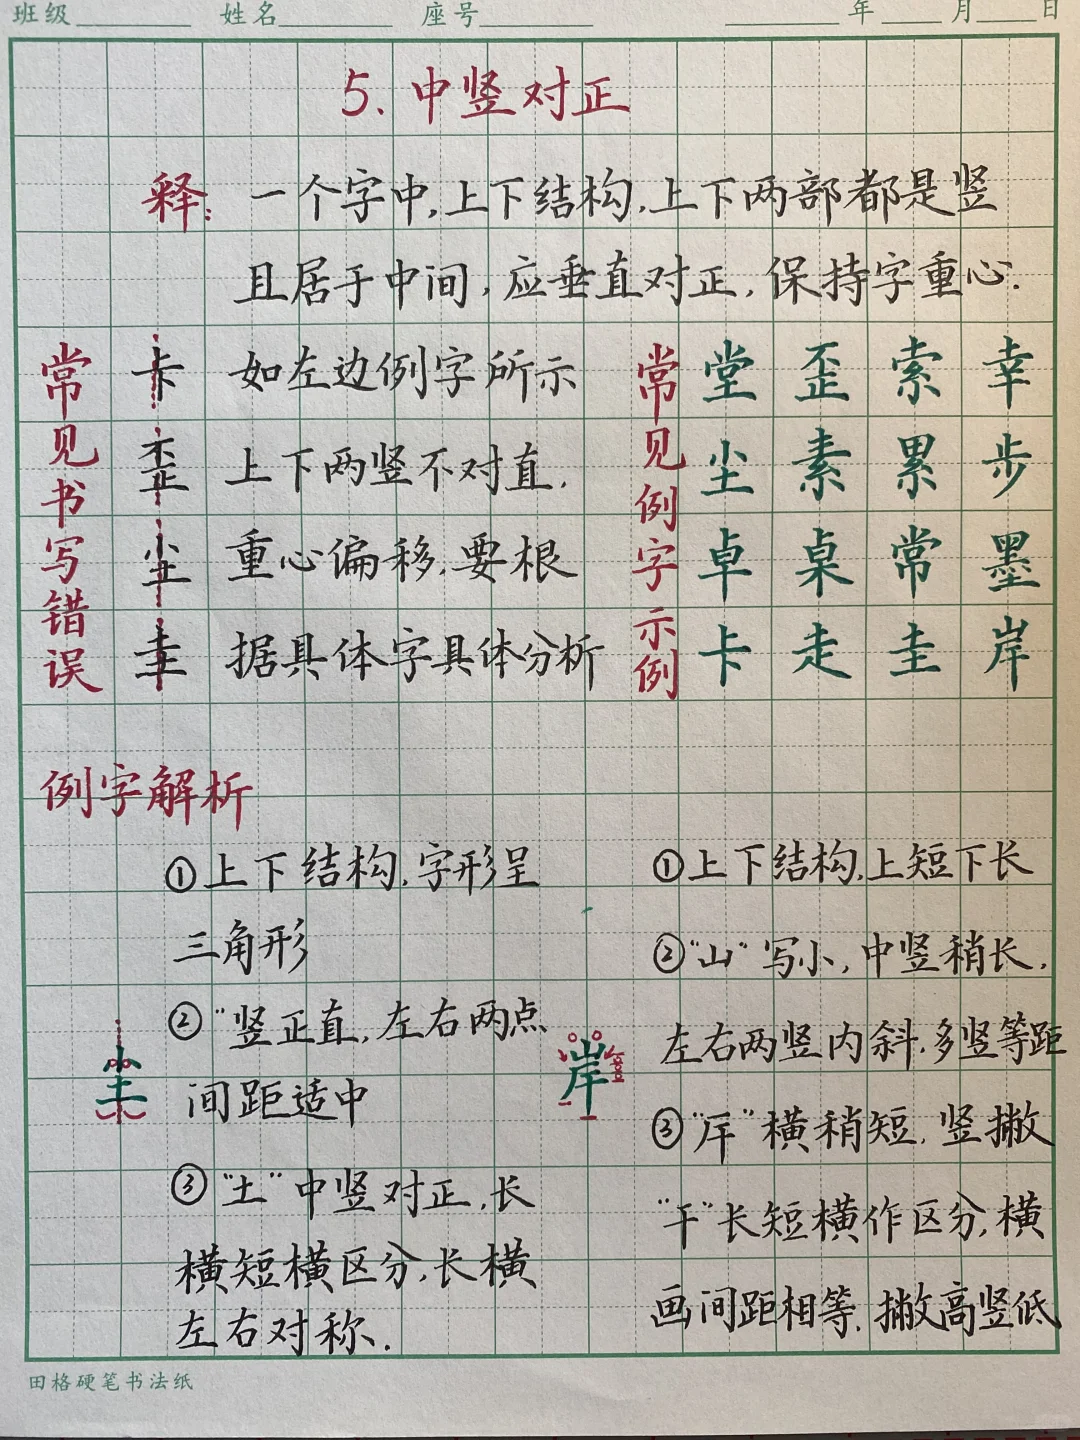 班级 姓名 座号 年 月 日
5.中竖对正
释: 一个字中,上下结构,上下两部都是竖
且居于中间,应垂直对正,保持字重心.
常见书写错误
卡 如左边例字所示
歪 上下两竖不对直,
尘 重心偏移,要根
圭 据具体字具体分析
常见例字示例
堂 歪 索 幸
尘 素 累 步
卓 桌 常 墨
卡 走 圭 岸
例字解析
尘
①上下结构,字形呈
三角形
②"竖正直,左右两点
间距适中
③"土"中竖对正,长
横短横区分,长横
左右对称.
岸
①上下结构,上短下长
②"山"写小,中竖稍长,
左右两竖内斜,多竖等距
③"厈"横稍短,竖撇
"干"长短横作区分,横
画间距相等,撇高竖低
田格硬笔书法纸